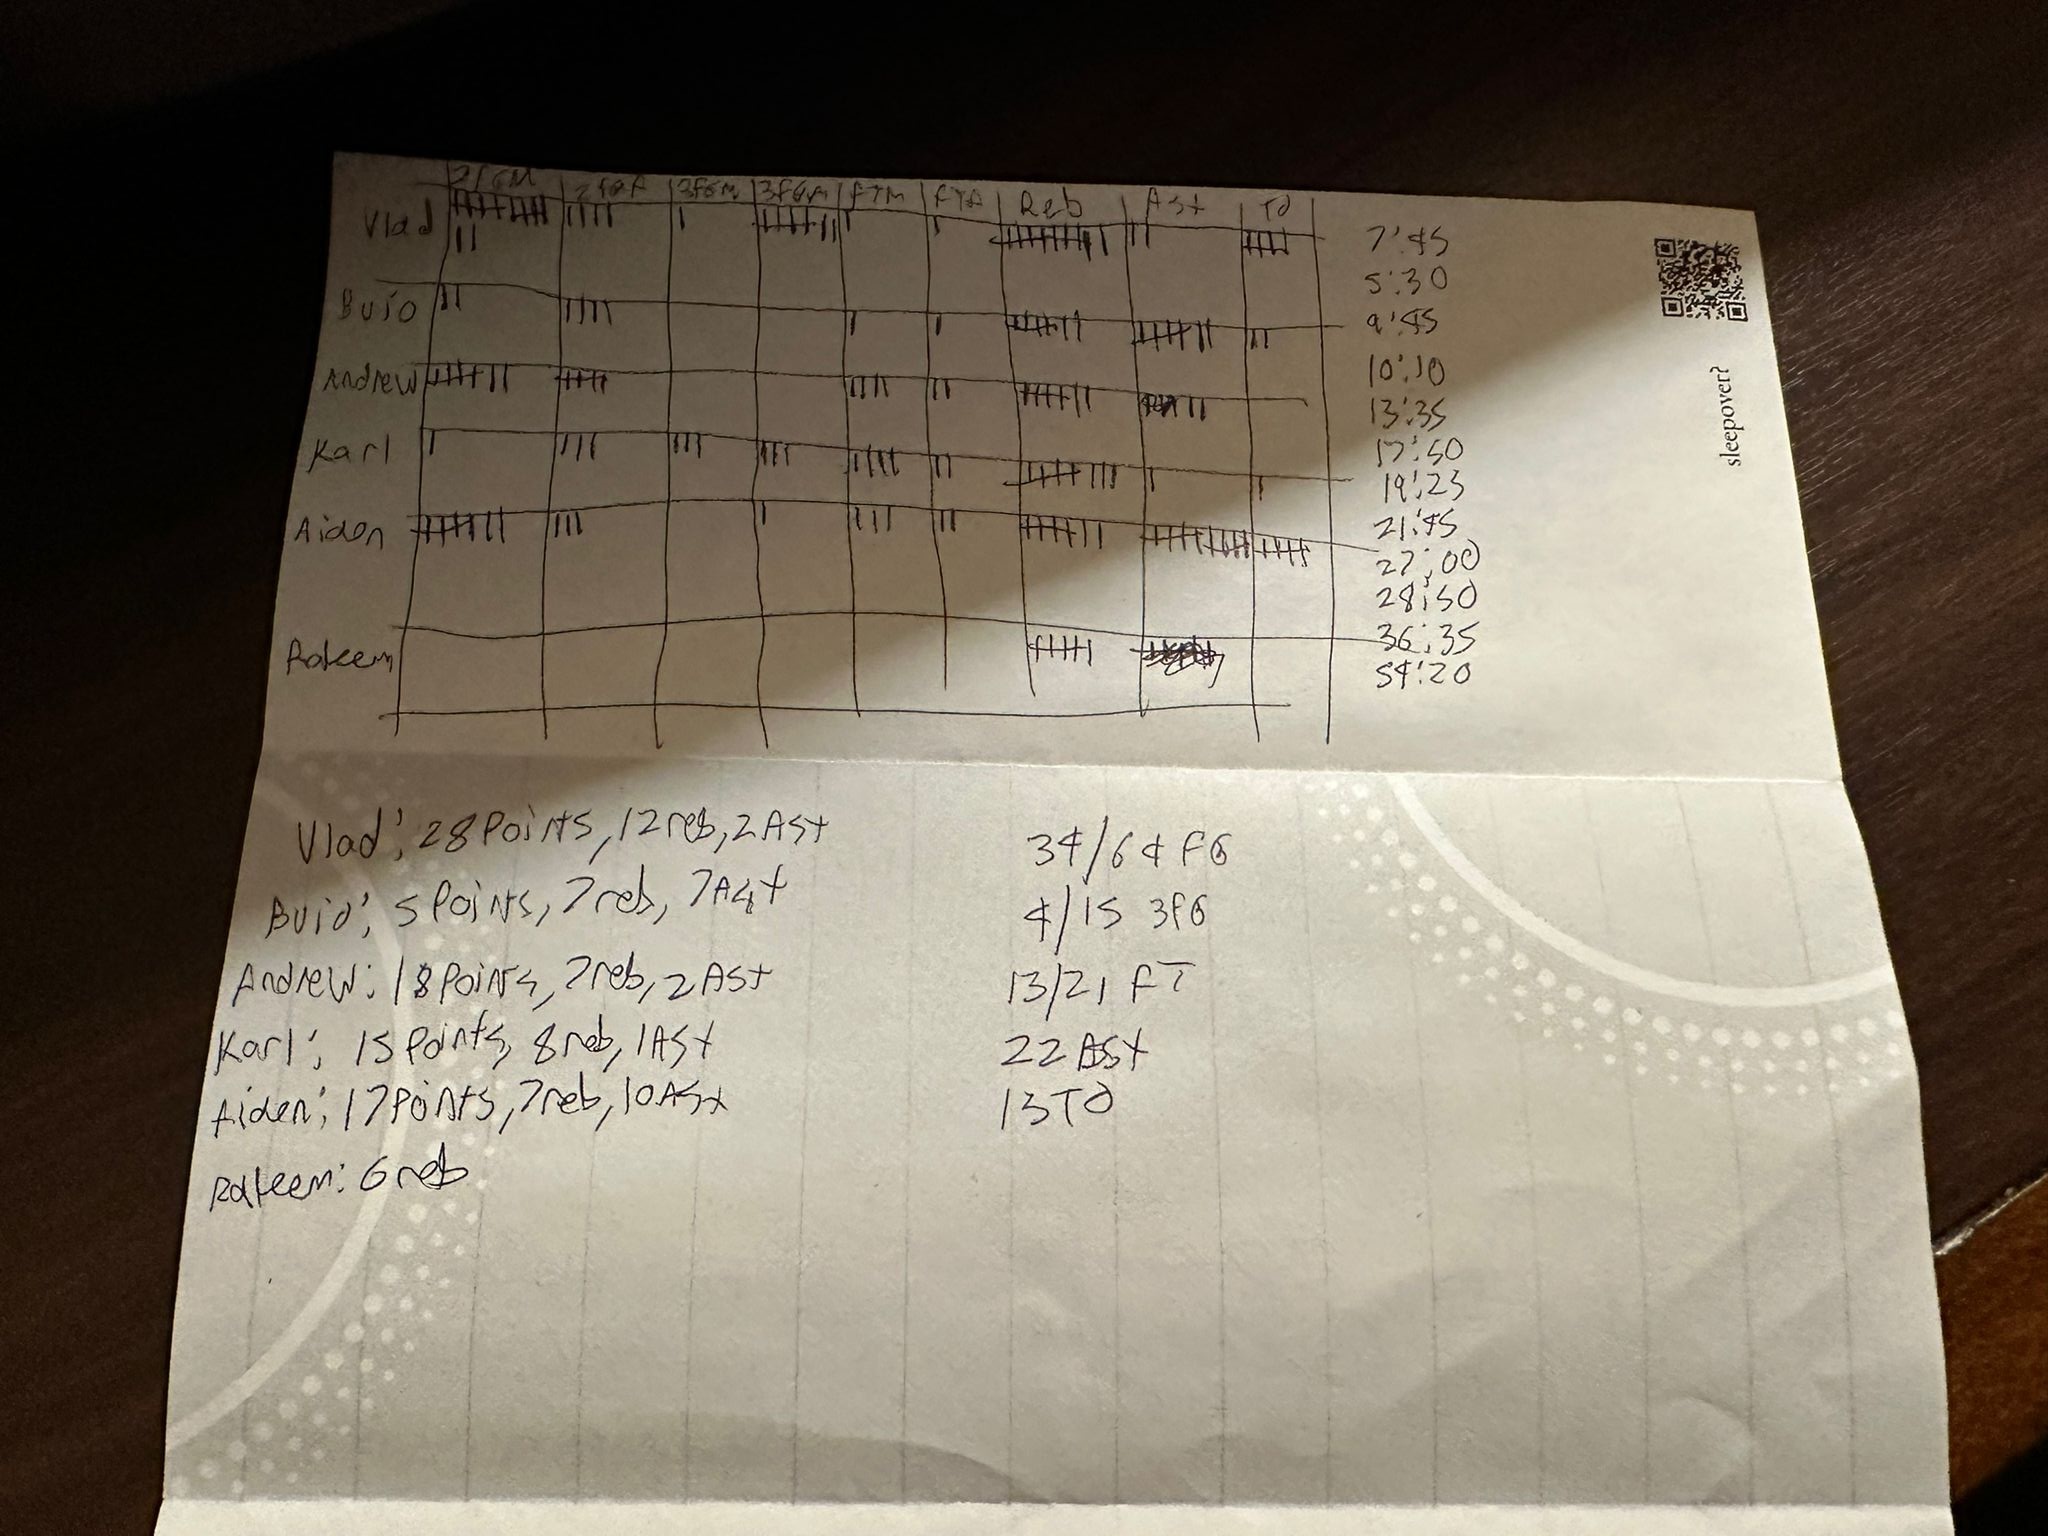 2FGM 2FGA 3FGM 3FGA FTM FTA Reb Ast TO
Vlad
Buio
Andrew
Karl
Aiden
Rakeem
7:45
5:30
9:45
10:10
13:35
17:50
19:23
21:45
27:00
28:50
36:35
54:20
sleepover?
Vlad: 28 Points, 12 reb, 2 Ast
Buio: 5 Points, 7 reb, 7 Ast
Andrew: 18 Points, 7 reb, 2 Ast
Karl: 15 Points, 8 reb, 1 Ast
Aiden: 17 Points, 7 reb, 10 Ast
Rakeem: 6 reb
34/64 FG
4/15 3FG
13/21 FT
22 Ast
13 TO